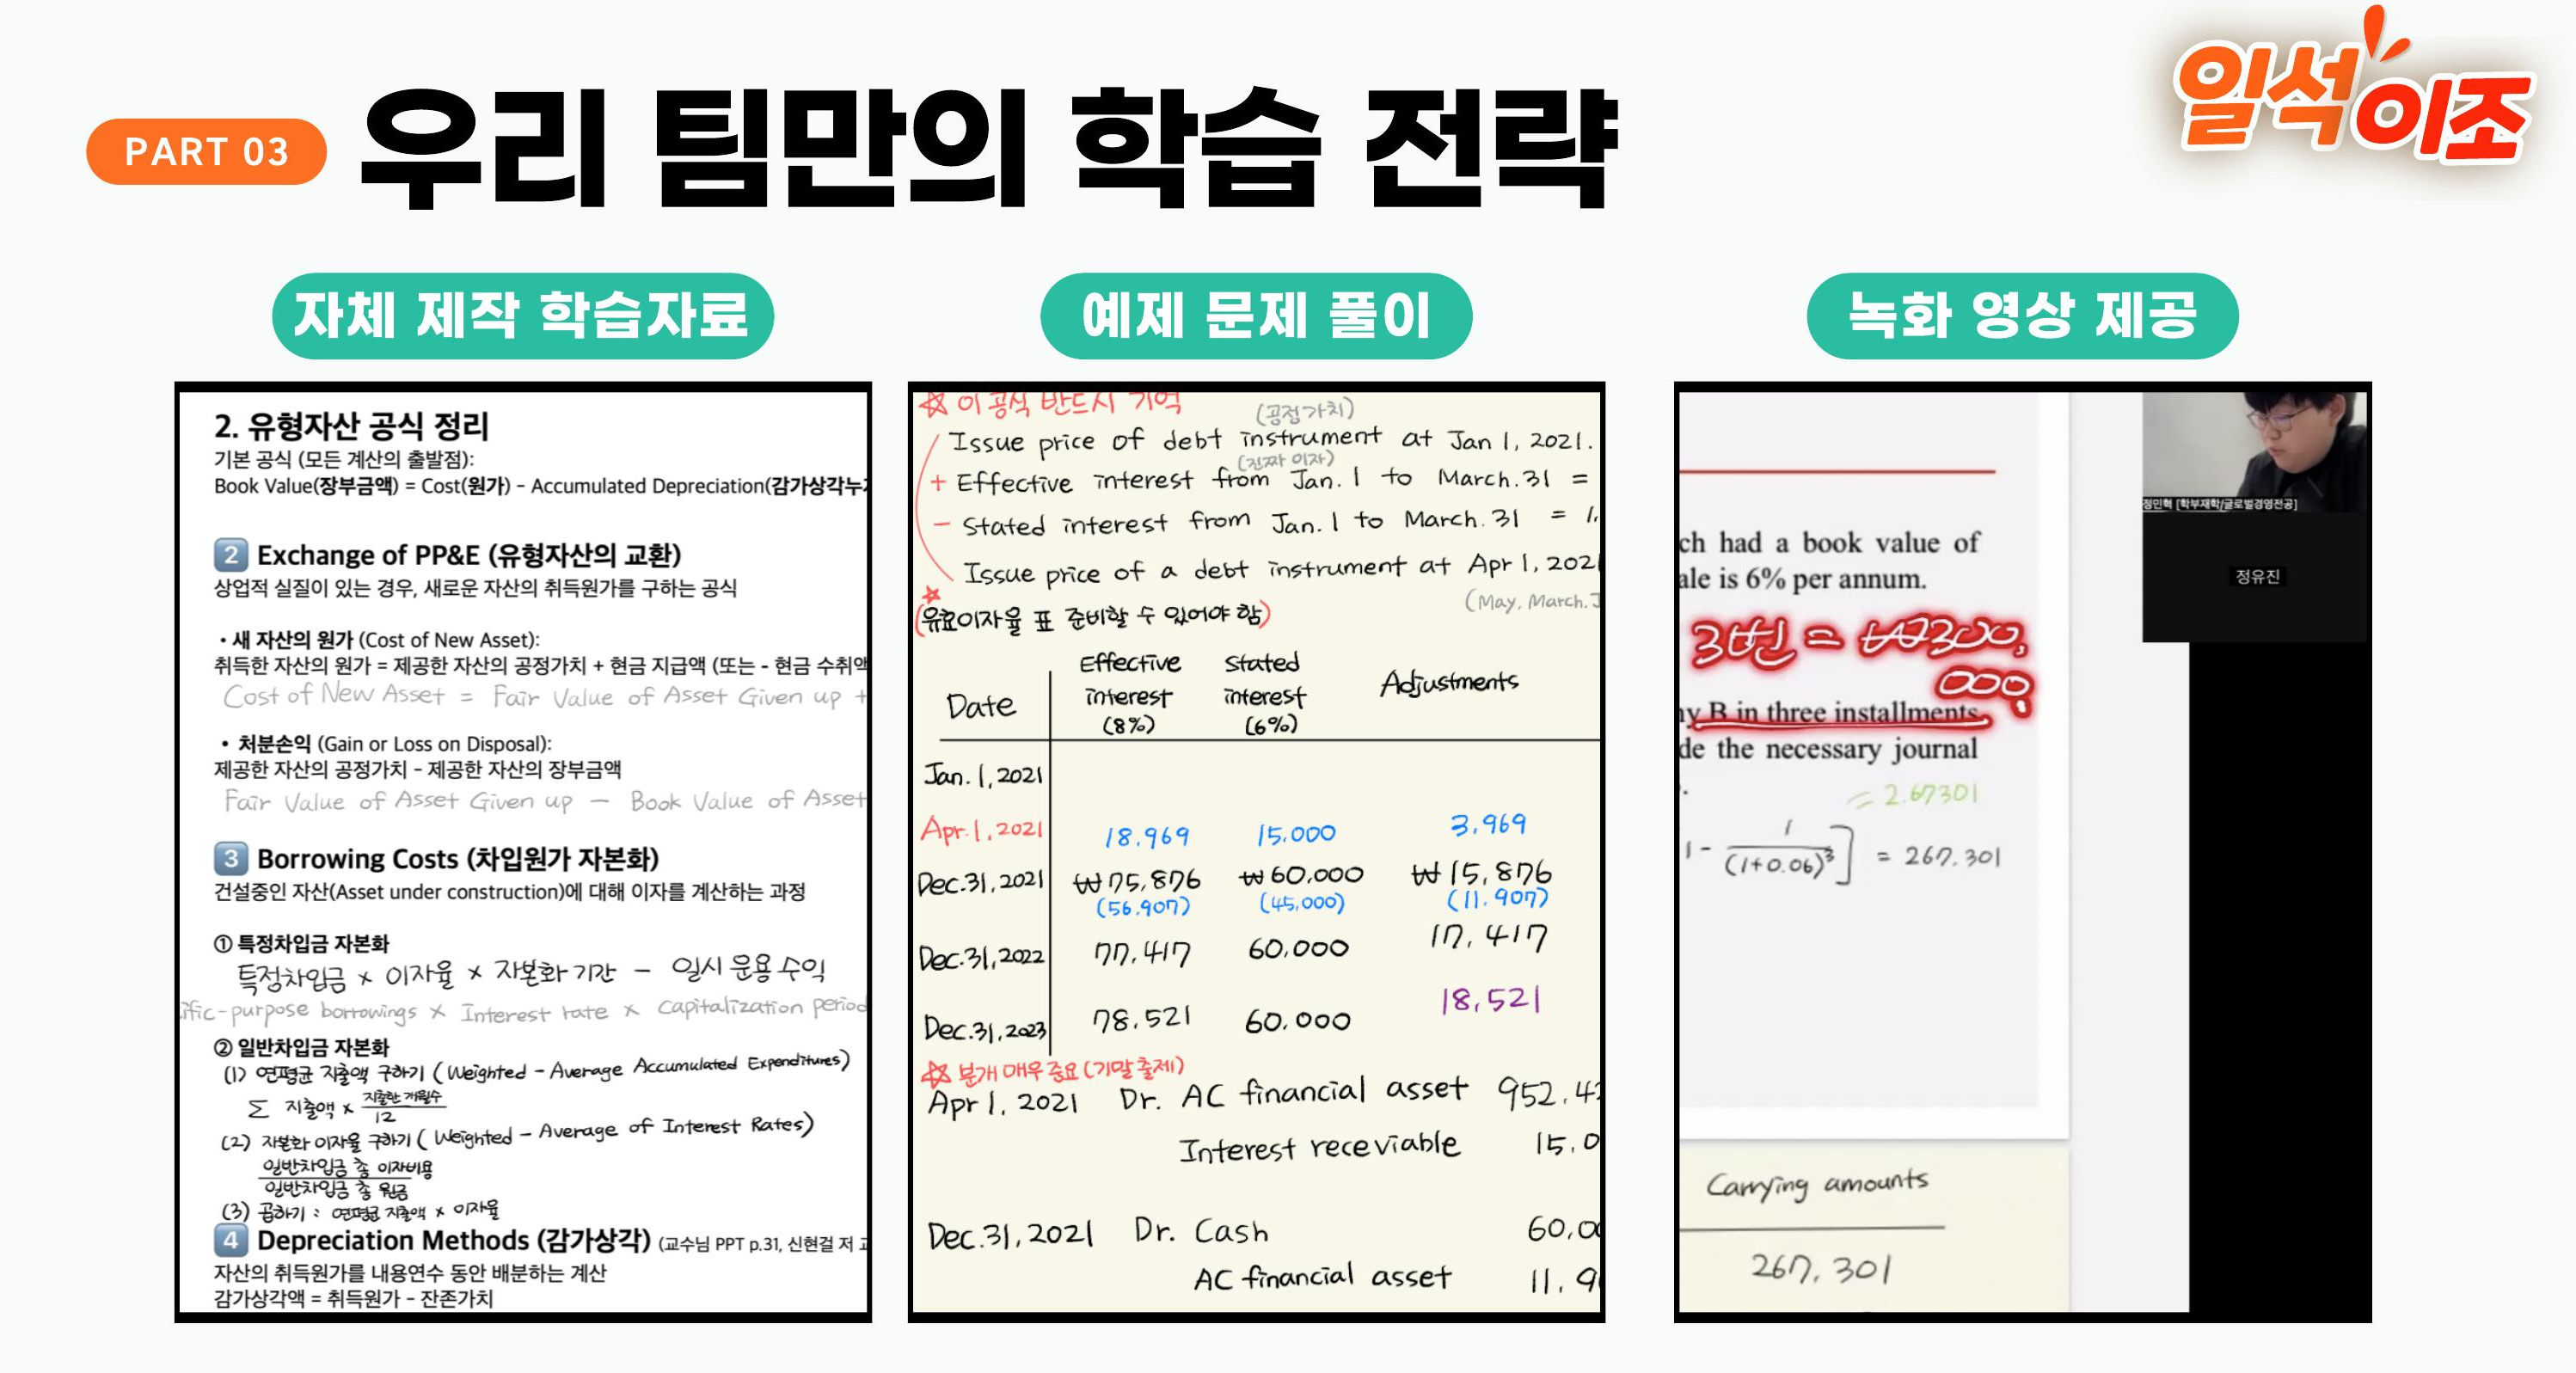 일석이조
PART 03
우리 팀만의 학습 전략
자체 제작 학습자료
2. 유형자산 공식 정리
기본 공식 (모든 계산의 출발점):
Book Value(장부금액) = Cost(원가) - Accumulated Depreciation(감가상각누
2 Exchange of PP&E (유형자산의 교환)
상업적 실질이 있는 경우, 새로운 자산의 취득원가를 구하는 공식
• 새 자산의 원가 (Cost of New Asset):
취득한 자산의 원가 = 제공한 자산의 공정가치 + 현금 지급액 (또는 - 현금 수취액
Cost of New Asset = Fair Value of Asset Given up +
• 처분손익 (Gain or Loss on Disposal):
제공한 자산의 공정가치 - 제공한 자산의 장부금액
Fair Value of Asset Given up - Book Value of Asset
3 Borrowing Costs (차입원가 자본화)
건설중인 자산(Asset under construction)에 대해 이자를 계산하는 과정
① 특정차입금 자본화
특정차입금 × 이자율 × 자본화 기간 - 일시 운용 수익
ific-purpose borrowings × Interest rate × Capitalization period
② 일반차입금 자본화
(1) 연평균 지출액 구하기 (Weighted - Average Accumulated Expenditures)
Σ 지출액 × 지출한 개월수
12
(2) 자본화 이자율 구하기 (Weighted - Average of Interest Rates)
일반차입금 총 이자비용
일반차입금 총 원금
(3) 곱하기 : 연평균 지출액 × 이자율
4 Depreciation Methods (감가상각) (교수님 PPT p.31, 신현걸 저
자산의 취득원가를 내용연수 동안 배분하는 계산
감가상각액 = 취득원가 - 잔존가치
예제 문제 풀이
☆ 이 공식 반드시 기억
(공정가치)
Issue price of debt instrument at Jan 1, 2021.
(진짜 이자)
+ Effective interest from Jan. 1 to March. 31 =
- Stated interest from Jan. 1 to March. 31 = 1.
Issue price of a debt instrument at Apr 1, 2021
(May, March. J
☆
(유효이자율 표 준비할 수 있어야 함)
Date Effective interest (8%) Stated interest (6%) Adjustments
Jan. 1, 2021
Apr. 1, 2021 18.969 15.000 3.969
Dec. 31, 2021 ₩75,876 ₩60.000 ₩15,876
(56.907) (45,000) (11.907)
Dec. 31, 2022 77.417 60.000 17.417
Dec. 31, 2023 78.521 60.000 18,521
☆ 분개 매우 중요 (기말 출제)
Apr 1, 2021 Dr. AC financial asset 952.42
Interest receviable 15.0
Dec. 31, 2021 Dr. Cash 60,00
AC financial asset 11.90
녹화 영상 제공
정민혁 [학부재학/글로벌경영전공]
정유진
ch had a book value of
ale is 6% per annum.
3번 = ₩300,
000?
ny B in three installments
de the necessary journal
= 2.67301
1 - 1
(1+0.06)³ ] = 267.301
Carrying amounts
267.301